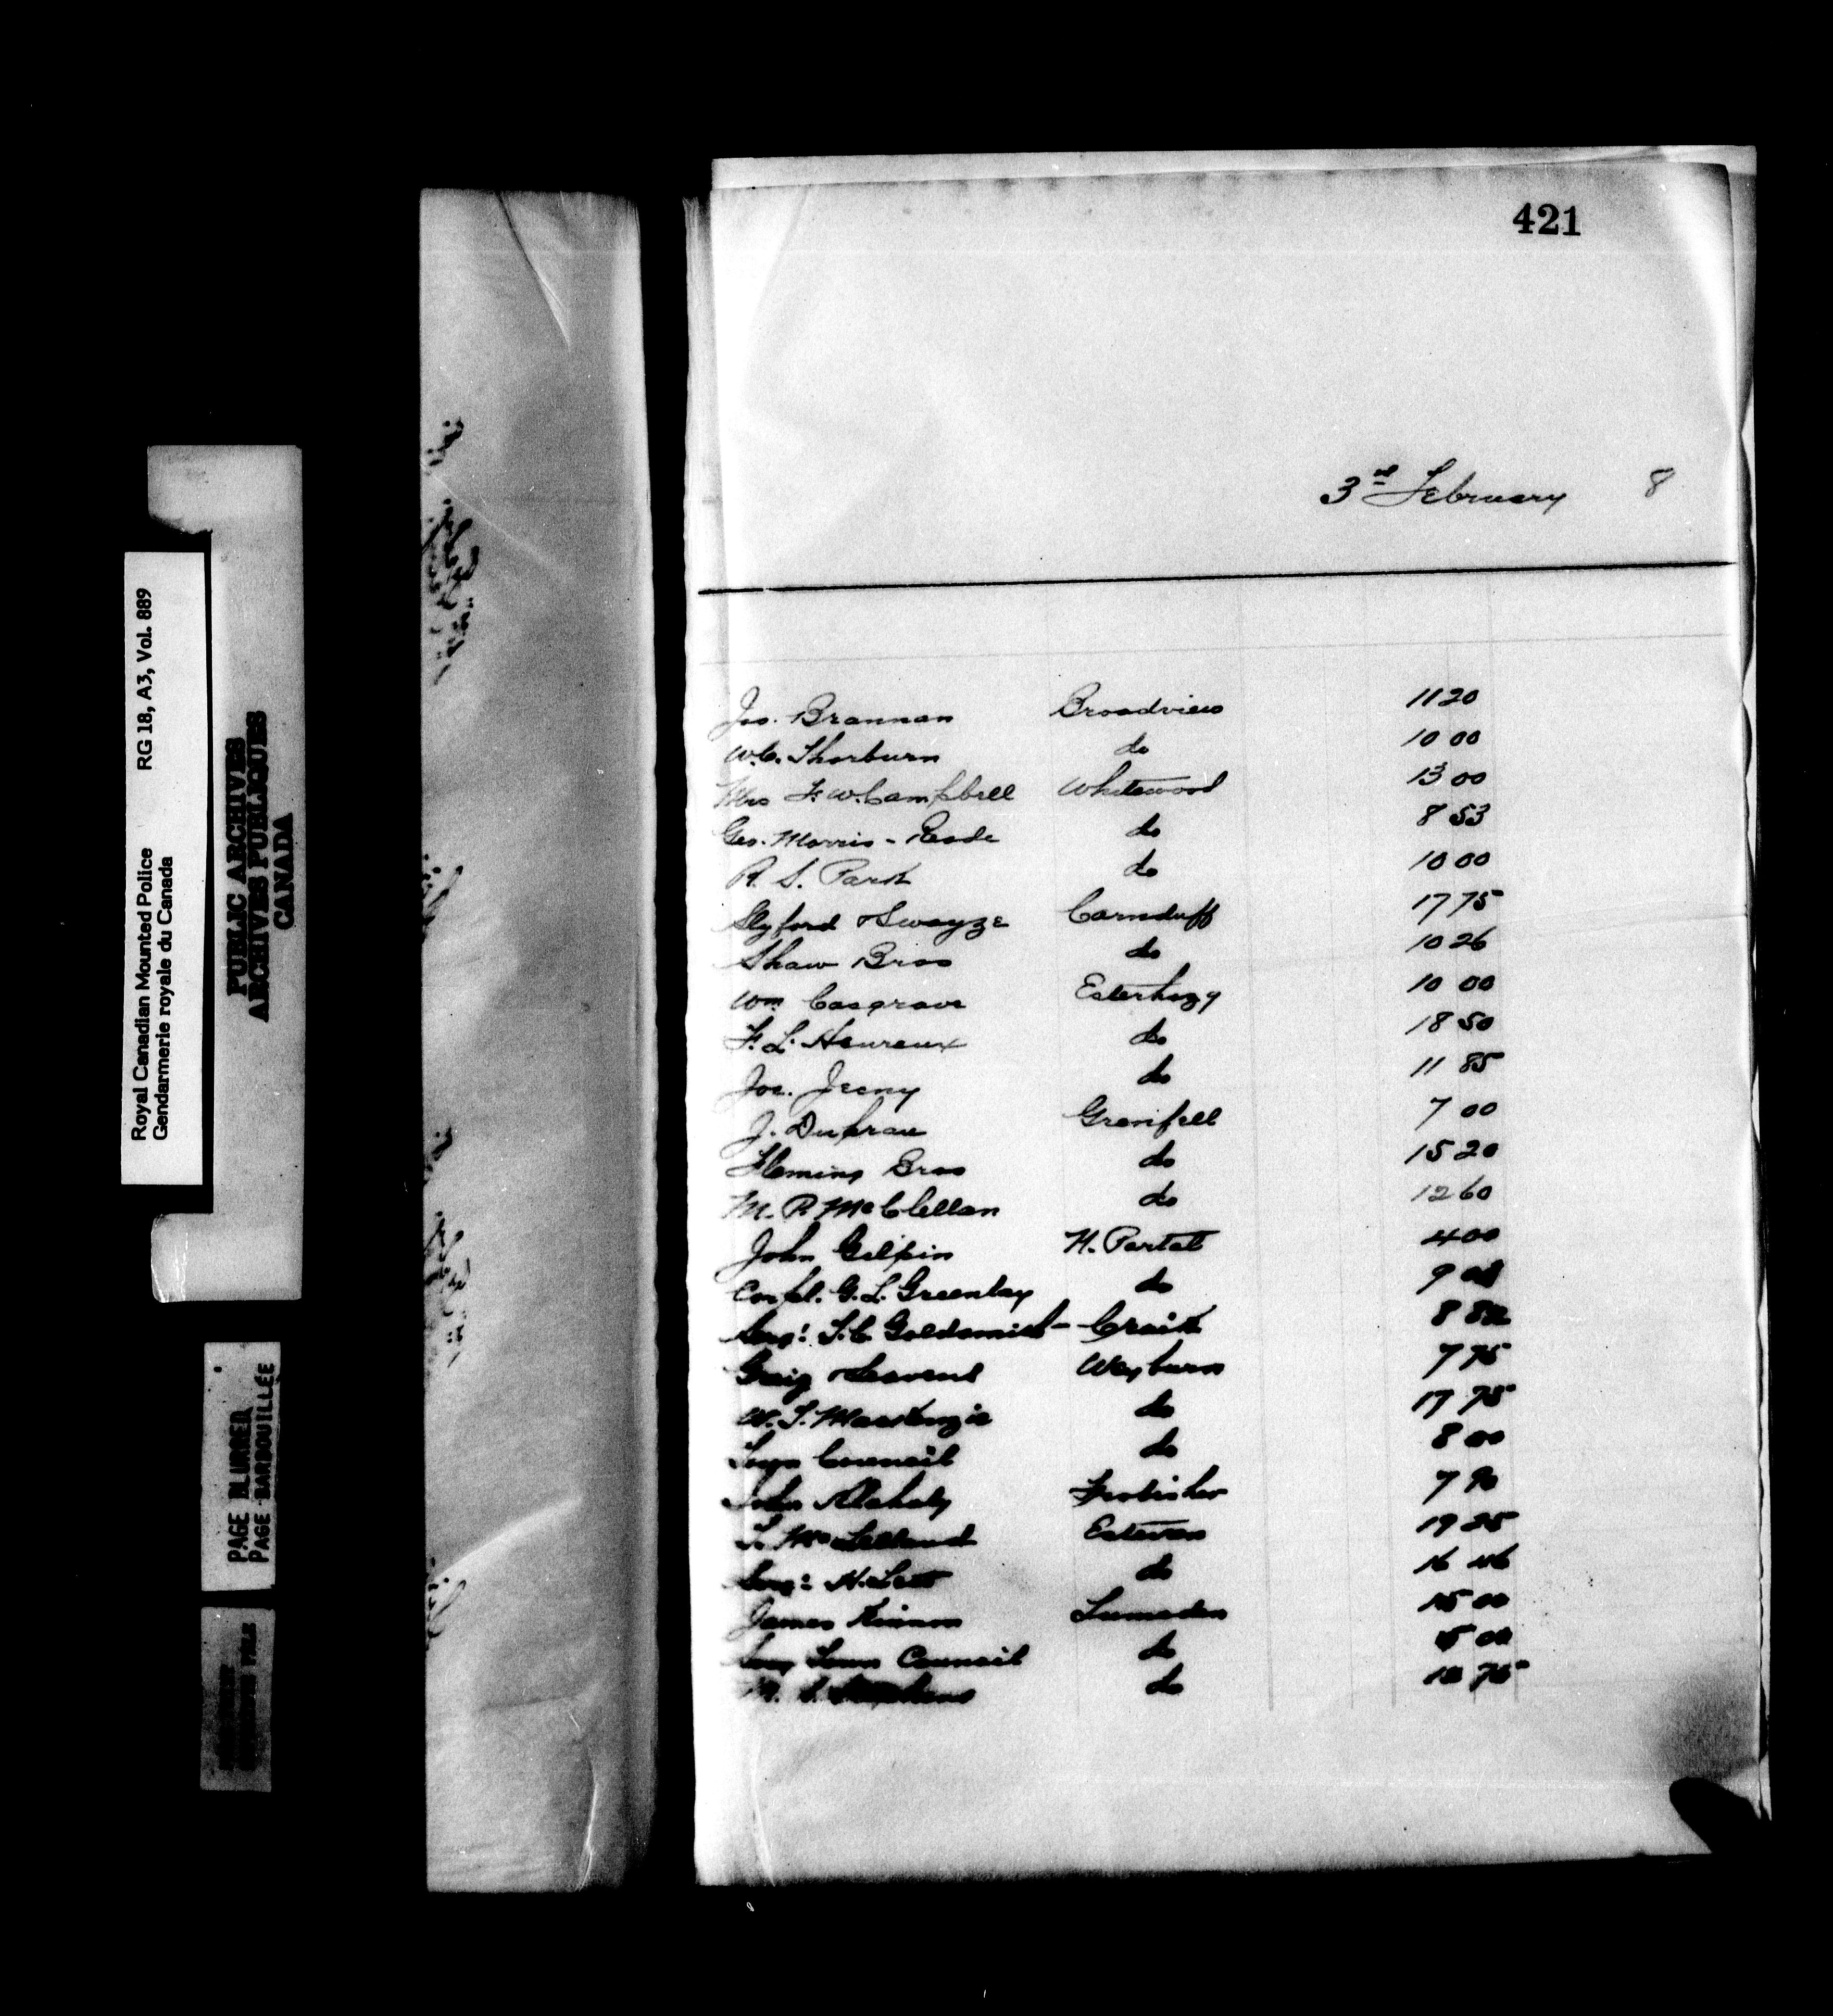 421
3rd February 8
Jos. Brannan Broadview 11 20
W.C. Thorburn do 10 00
Mrs F. W. Campbell Whitewood 13 00
Geo. Morris - Reade do 8 53
R. S. Park do 10 00
Slyford & Swayze Carnduff 17 75
Shaw Bros do 10 26
Wm Cosgrove Esterhazy 10 00
F. L. Heureux do 18 50
Jos. Jeeny do 11 85
J. Duprau Grenfell 7 00
Fleming Bros do 15 20
M. P. McClellan do 12 60
John Gilpin N. Portal 4 00
Corpl. G. L. Greenlay do 9
Sergt. T.C. Goldsmith - Craik 8 82
Greig Weyburn 7 75
W. T. MacKenzie do 17 75
Town Council do 8 00
John Frobisher 7 90
T. McLelland Estevan 19 25
Sergt. H. Lett do 16 46
James Kinnon Lumsden 15 00
Town Council do 15 00
do 75
Royal Canadian Mounted Police RG 18, A3, Vol. 889
Gendarmerie royale du Canada
PUBLIC ARCHIVES
ARCHIVES PUBLIQUES
CANADA
PAGE BLURRED
PAGE BARBOUILLÉE